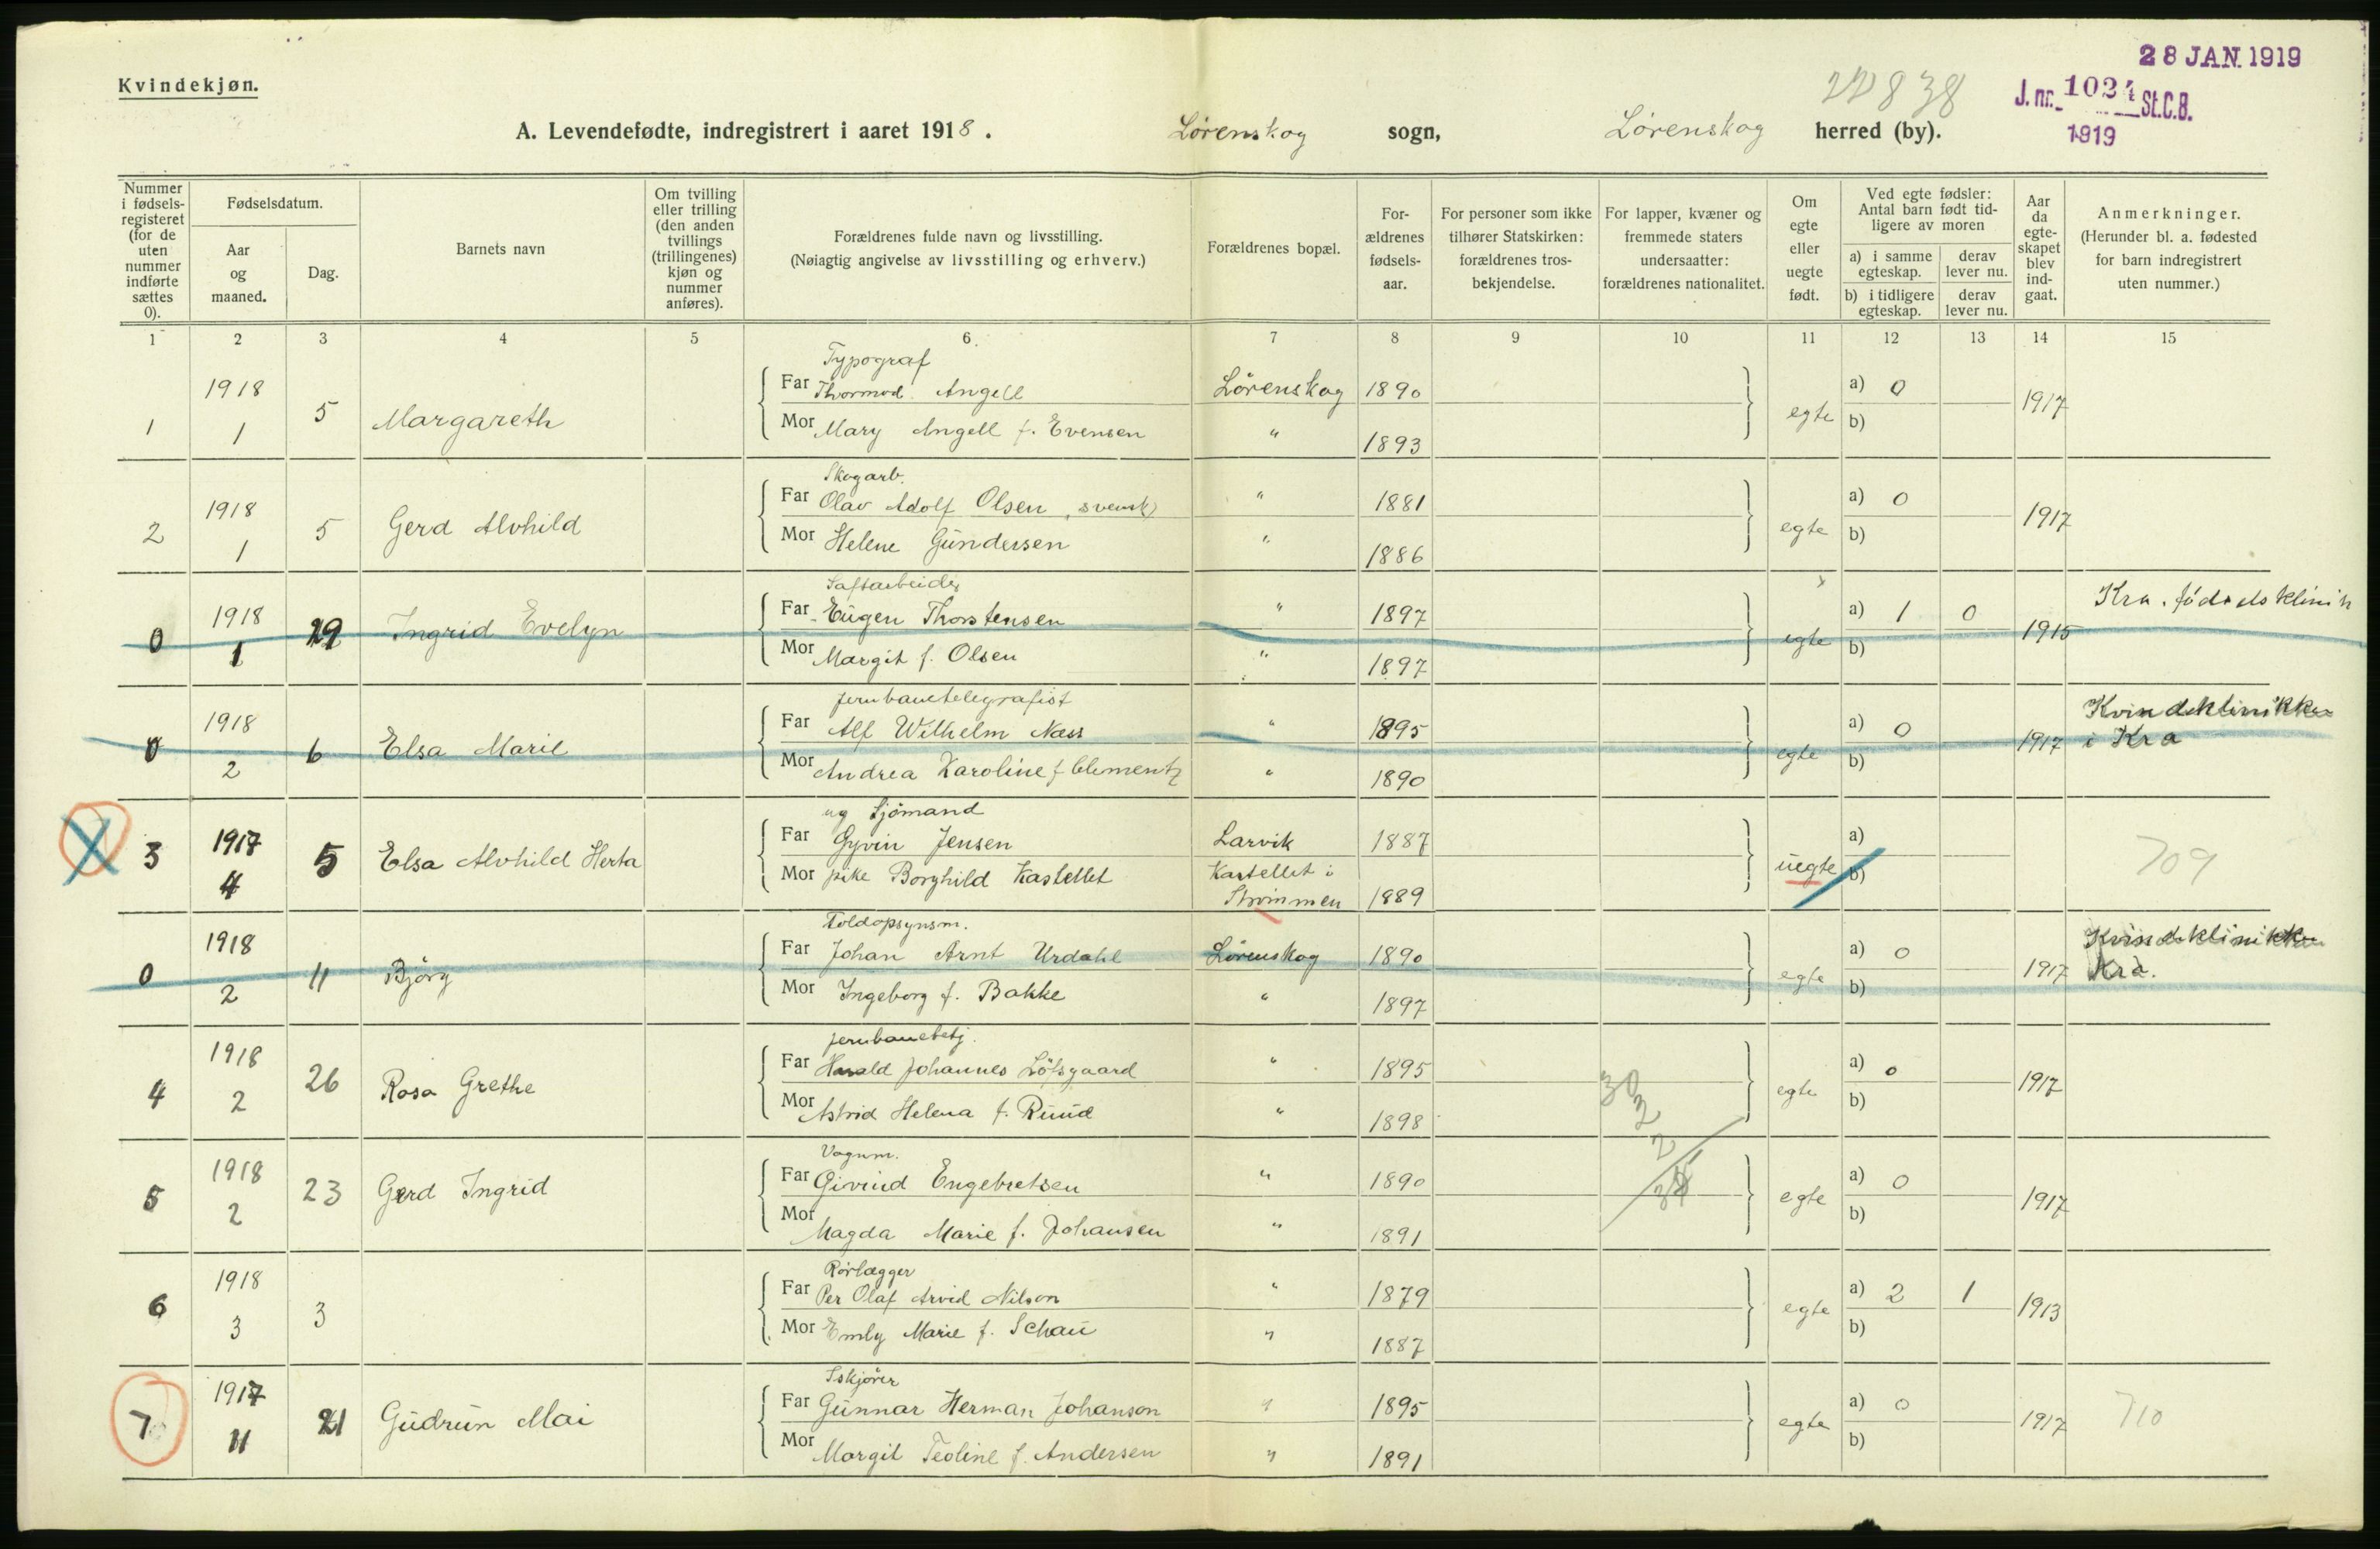 28 JAN. 1919
Kvindekjøn.
22838
J. nr. 1024 St.C.B.
1919
A. Levendefødte, indregistrert i aaret 1918. Lørenskog sogn, Lørenskog herred (by).
Nummer i fødsels-registeret (for de uten nummer indførte sættes 0).
Fødselsdatum.
Aar og maaned.
Dag.
Barnets navn
Om tvilling eller trilling (den anden tvillings (trillingenes) kjøn og nummer anføres).
Forældrenes fulde navn og livsstilling.
(Nøiagtig angivelse av livsstilling og erhverv.)
Forældrenes bopæl.
For-ældrenes fødsels-aar.
For personer som ikke tilhører Statskirken: forældrenes tros-bekjendelse.
For lapper, kvæner og fremmede staters undersaatter: forældrenes nationalitet.
Om egte eller uegte født.
Ved egte fødsler: Antal barn født tid-ligere av moren
a) i samme egteskap.
derav lever nu.
b) i tidligere egteskap.
derav lever nu.
Aar da egte-skapet blev ind-gaat.
Anmerkninger.
(Herunder bl. a. fødested for barn indregistrert uten nummer.)
1 2 3 4 5 6 7 8 9 10 11 12 13 14 15
Typograf
1918 Far Thormod Angell Lörenskog 1890 a) 0
1 1 5 Margareth Mor Mary Angell f. Evensen " 1893 egte b) 1917
Skogarb.
1918 Far Olav Adolf Olsen, svensk " 1881 a) 0
2 1 5 Gerd Alvhild Mor Helene Gundersen " 1886 egte b) 1917
Saftarbeider
1918 Far Eugen Thorstensen " 1897 a) 1 0 Kra. fødselsklinik
0 1 29 Ingrid Evelyn Mor Margit f. Olsen " 1897 egte b) 1915
jernbanetelegrafist
1918 Far Alf Wilhelm Næss " 1895 a) 0 Kvindeklinikken
0 2 6 Elsa Marie Mor Andrea Karoline f Clementz " 1890 egte b) 1917 i Kra
ug Sjömand
1917 Far Gyvin Jensen Larvik 1887 a)
3 4 5 Elsa Alvhild Herta Mor pike Borghild Kastellet Kastellet i Strømmen 1889 uegte b) 709
Toldopsynsm.
1918 Far Johan Arnt Urdahl Lörenskog 1890 a) 0 Kvindeklinikken
0 2 11 Björg Mor Ingeborg f. Bakke " 1897 egte b) 1917 Kra.
jernbanebetj.
1918 Far Harald Johannes Lötsgaard " 1895 a) 0
4 2 26 Rosa Grethe Mor Astrid Helena f. Ruud " 1898 egte b) 1917
30
2
2
34
Vognm.
1918 Far Oivind Engebretsen " 1890 a) 0
5 2 23 Gerd Ingrid Mor Magda Marie f. Johansen " 1891 egte b) 1917
Rörlægger
1918 Far Per Olaf Arvid Nilson " 1879 a) 2 1
6 3 3 Mor Emly Marie f. Schau " 1887 egte b) 1913
Iskjörer
1917 Far Gunnar Herman Johanson " 1895 a) 0
7 11 21 Gudrun Mai Mor Margit Teoline f. Andersen " 1891 egte b) 1917 710